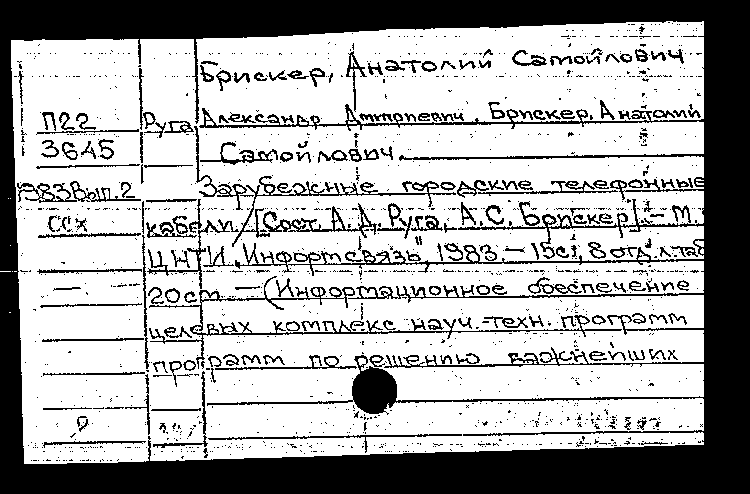 Брискер, Анатолий Самойлович
П22 Руга Александр Дмитриевич, Брискер, Анатолий
3645 Самойлович.
1983 Вып.2 Зарубежные городские телефонные
ССХ кабели / [Сост. А. Д. Руга, А. С. Брискер]. – М.:
ЦНТИ „Информсвязь", 1983. – 15с., 8 отд. л. таб
20см – (Информационное обеспечение
целевых комплекс науч.-техн. программ
программ по решению важнейших